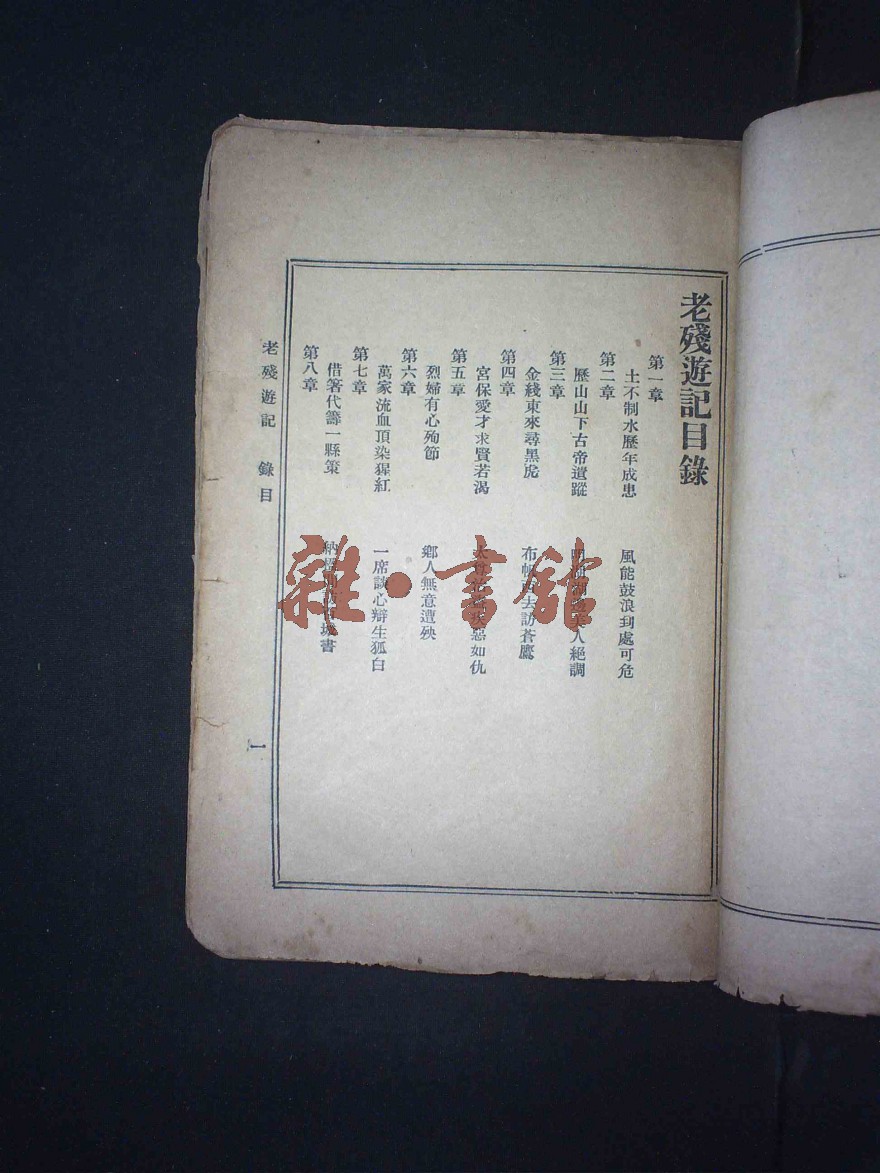 老殘遊記目錄
第一章
土不制水歷年成患 風能鼓浪到處可危
第二章
歷山山下古帝遺蹤 明湖湖邊美人絕調
第三章
金綫東來尋黑虎 布帆西去訪蒼鷹
第四章
宮保愛才求賢若渴 太尊治盜疾惡如仇
第五章
烈婦有心殉節 鄉人無意遭殃
第六章
萬家流血頂染猩紅 一席談心辯生狐白
第七章
借箸代籌一縣策 納楹閒訪百城書
第八章
老殘遊記 錄目 一
雜·書館